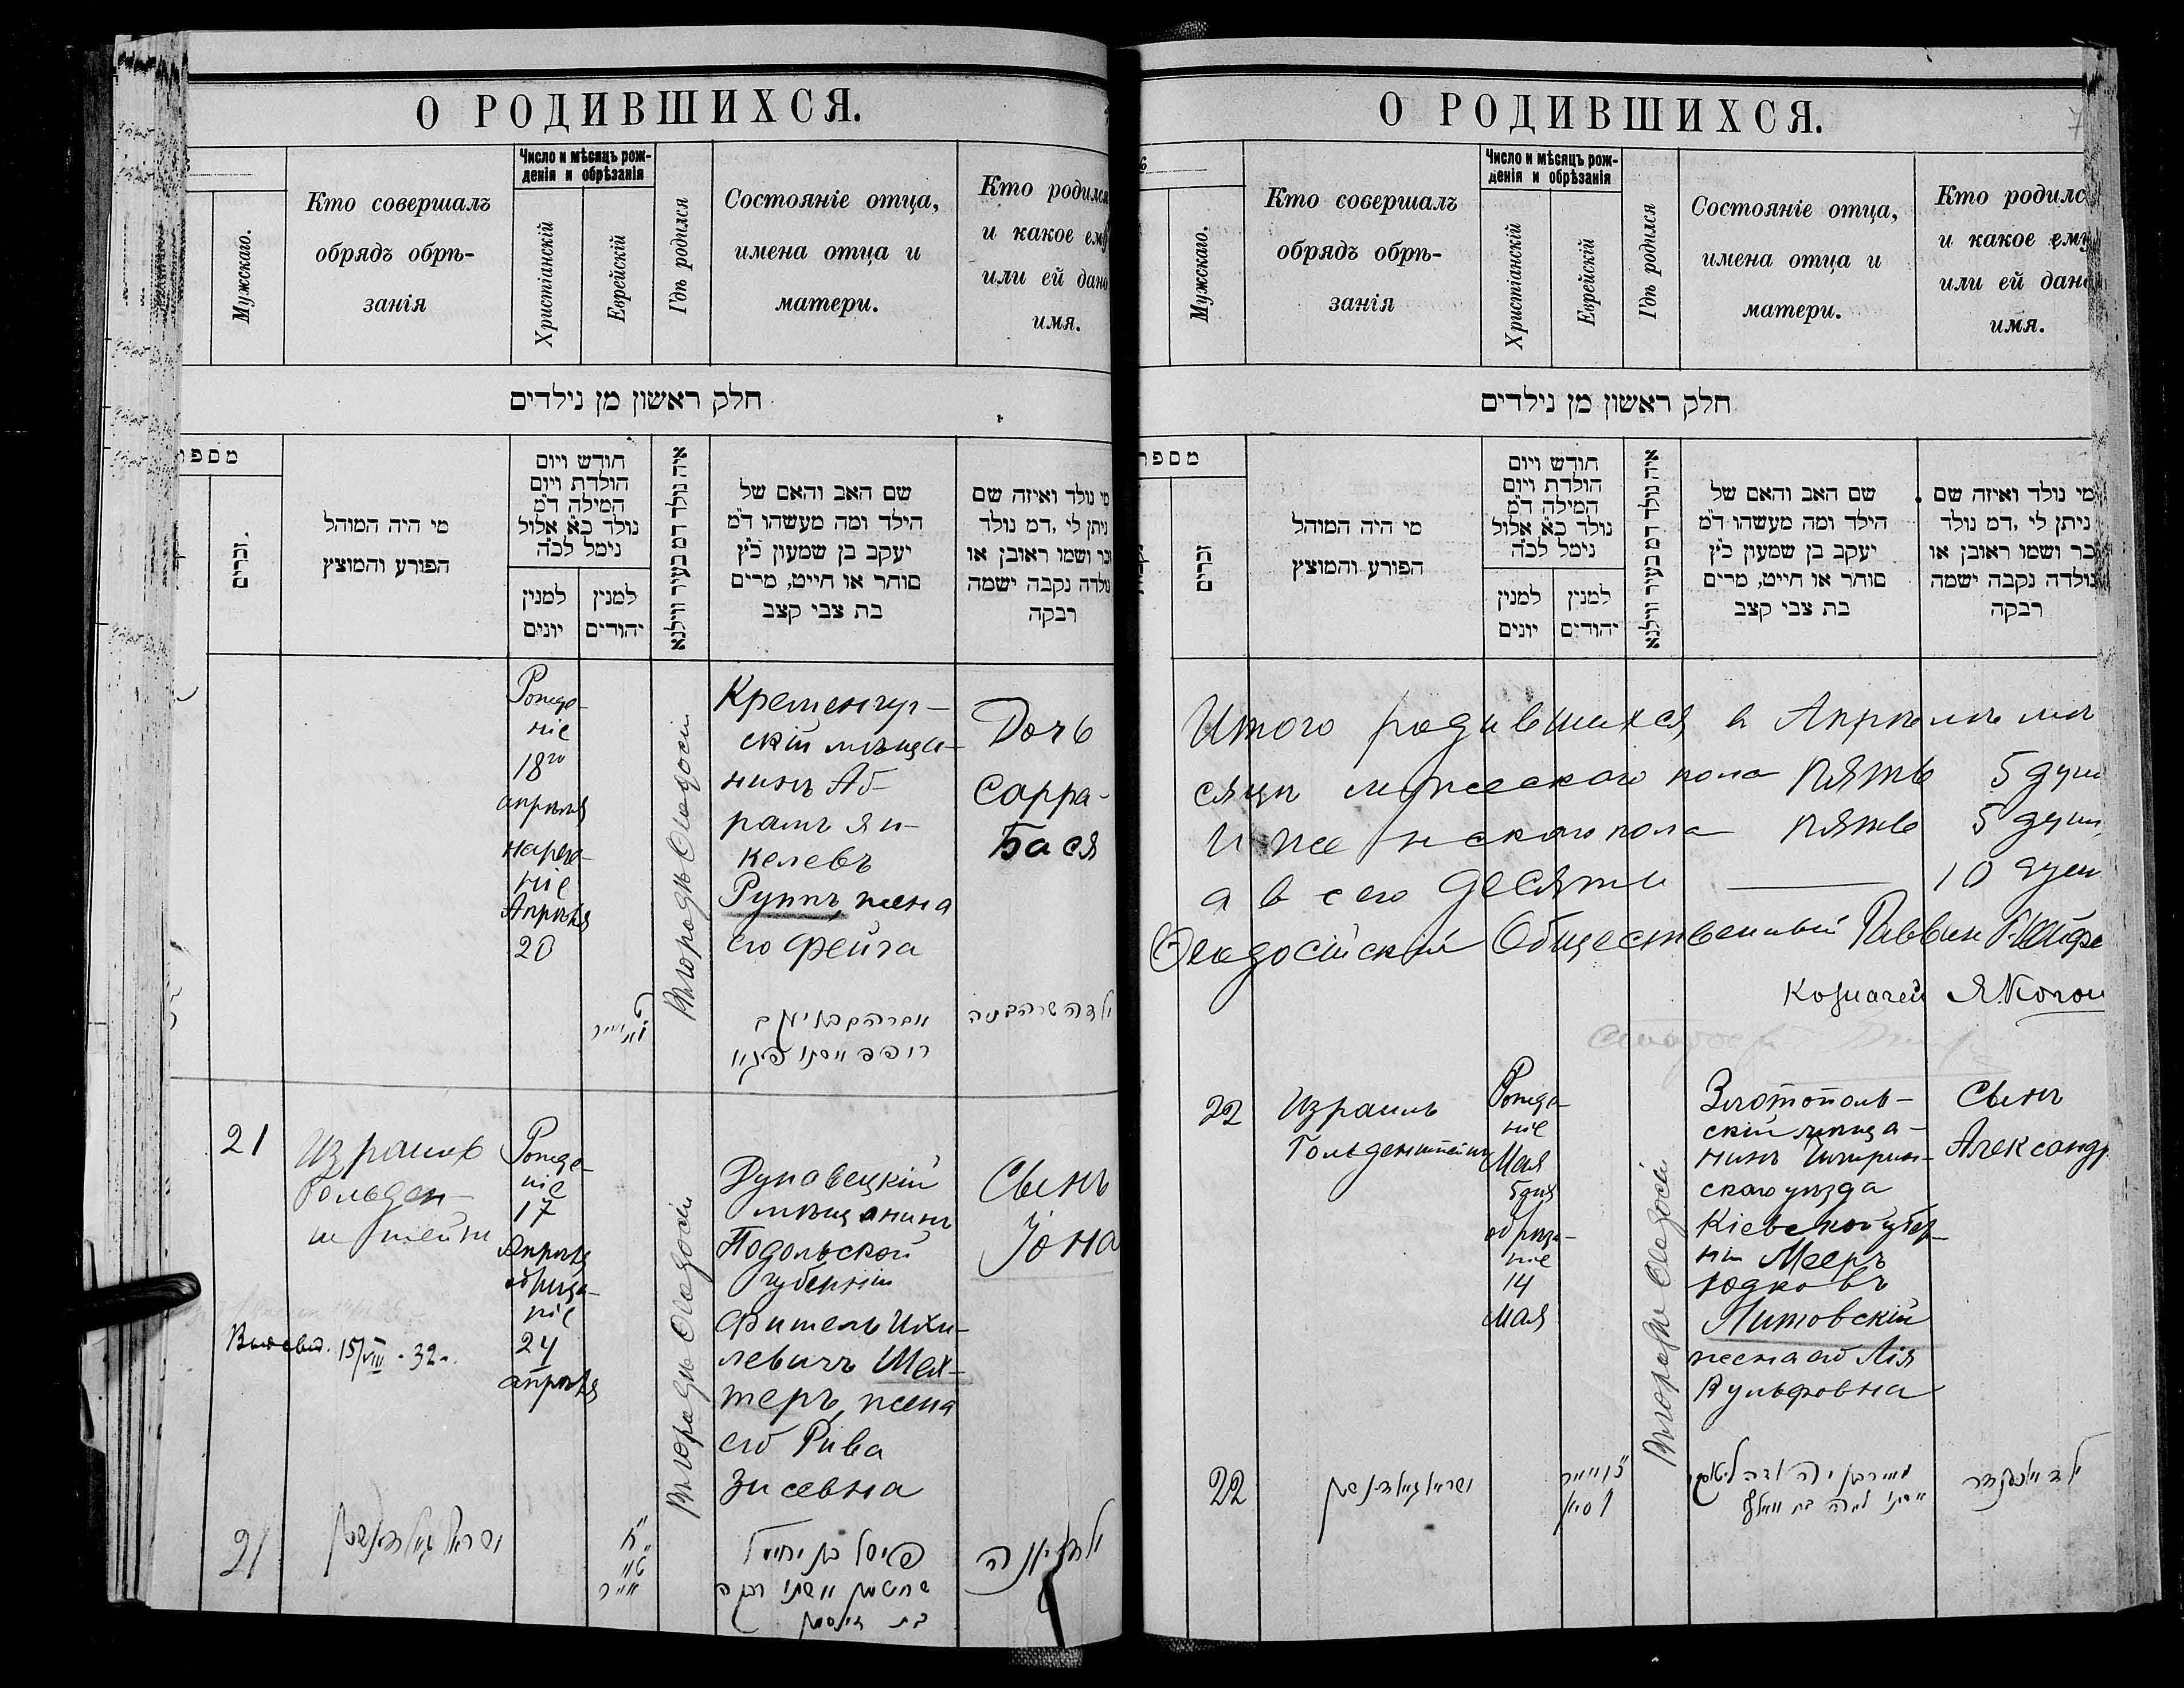 О РОДИВШИХСЯ.
Мужскаго.
Кто совершалъ
обрядъ обрѣ-
занія
Число и мѣсяцъ рож-
денія и обрѣзанія
Христіанскій
Еврейскій
Гдѣ родился
Состояніе отца,
имена отца и
матери.
Кто родился
и какое ему
или ей дано
имя.
חלק ראשון מן נילדים
מספר
זכרים.
מי היה המוהל
הפורע והמוצץ
חודש ויום
הולדת ויום
המילה ד״מ
נולד כ״א אלול
נימל לכ״ה
למנין
יונים
למנין
יהודים
איה נולד דמ בעיר ווילנא
שם האב והאם של
הילד ומה מעשהו ד״מ
יעקב בן שמעון כ״ץ
סוחר או חייט, מרים
בת צבי קצב
מי נולד ואיזה שם
ניתן לי ,דמ נולד
זכר ושמו ראובן או
נולדה נקבה ישמה
רבקה
Рожде-
ніе
18го
апрѣля
нарече-
ніе
Апрѣля
20
Въ городѣ Ѳеодосіи
Кременчуг-
скій мѣща-
нинъ Аб-
рамъ Ян-
келевъ
Руппъ, жена
его Фейга
Дочь
Сарра-
Бася
21
Израиль
Гольден-
штейнъ
Рожде-
ніе
17
Апрѣля
обрѣза-
ніе
24
апрѣля
Въ городѣ Ѳеодосіи
Дунавецкій
мѣщанинъ
Подольской
губерніи
Фишель Ихи-
левичъ Шех-
теръ, жена
его Рива
Зисевна
Сынъ
Іона
15/VIII - 32 -.
21
О РОДИВШИХСЯ.
Мужскаго.
Кто совершалъ
обрядъ обрѣ-
занія
Число и мѣсяцъ рож-
денія и обрѣзанія
Христіанскій
Еврейскій
Гдѣ родился
Состояніе отца,
имена отца и
матери.
Кто родилс
и какое ему
или ей дано
имя.
חלק ראשון מן נילדים
מספר
זכרים
מי היה המוהל
הפורע והמוצץ
חודש ויום
הולדת ויום
המילה ד״מ
נולד כ״א אלול
נימל לכ״ה
למנין
יונים
למנין
יהודים
איה נולד דמ בעיר ווילנא
שם האב והאם של
הילד ומה מעשהו ד״מ
יעקב בן שמעון כ״ץ
סוחר או חייט, מרים
בת צבי קצב
מי נולד ואיזה שם
ניתן לי ,דמ נולד
זכר ושמו ראובן או
נולדה נקבה ישמה
רבקה
Итого родившихся в Апрѣлѣ мѣ
сяцѣ мужескаго пола пять 5 душ
и женскаго пола пять 5 душ
а всего десять — 10 душ
Ѳеодосійскій Общественный Раввин
Казначей
22
Израиль
Гольденштейнъ
Рожде-
ніе
Мая
6го
обрѣза-
ніе
14
Мая
Въ городѣ Ѳеодосіи
Златополь-
скій мѣща-
нинъ Чигирин-
скаго уѣзда
Кіевской губер-
ніи Мееръ
Юдковъ
Литовскій
жена его Лія
Вульфовна
Сынъ
Александр
22